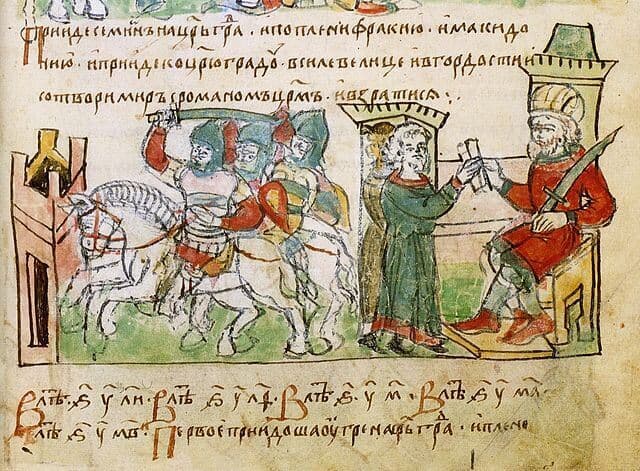 Прииде семинъ на цр҃ьгра҃ . и поплени фракию . и макидо
нию . и прииде ко цр҃юградоу . в силе велице и в гордости и
сотвори миръ с романомъ цр҃мъ . и взратися :·
В лѣт҃ . ѕ҃ у ли · В лѣт҃ ѕ҃ у лѳ · В лѣт҃ . ѕ҃ . у м · В лѣт҃ ѕ҃ у ма
В лѣт҃ ѕ҃ у мв · Первое приидоша оугре на црьгра҃ . и плено